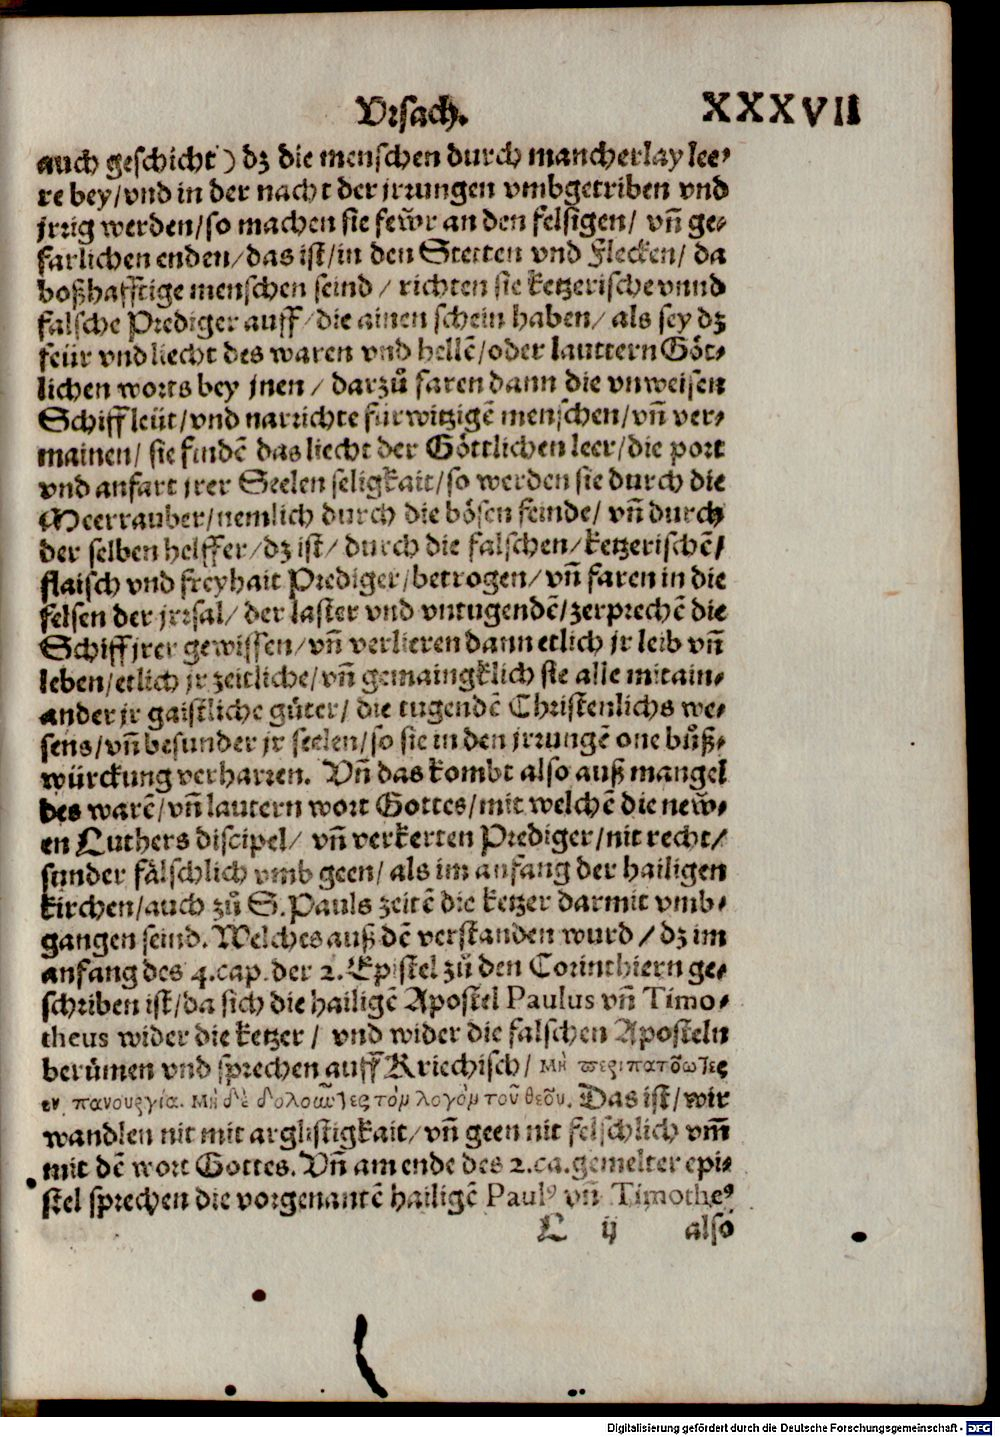 Vrsach.
XXXVII
auch geschicht) dz die menschen durch mancherlay lee⸗
re bey/vnd in der nacht der jrrungen vmbgetriben vnd
jrrig werden/so machen sie feẅr an den felsigen/ vñ ge⸗
farlichen enden/das ist/in den Stetten vnd Flecken/ da
boßhafftige menschen seind / richten sie ketzerische vnnd
falsche Prediger auff/die ainen schein haben/ als sey dz
feür vnd liecht des waren vnd hellē/oder lauttern Göt⸗
lichen worts bey jnen / darzů faren dann die vnweisen
Schiffleüt/vnd narrichte fürwitzigē menschen/vñ ver⸗
mainen/ sie findē das liecht der Göttlichen leer/die port
vnd anfart jrer Seelen seligkait/so werden sie durch die
Meerrauber/nemlich durch die bösen feinde/ vñ durch
der selben helffer/dz ist/ durch die falschen/ketzerischē/
flaisch vnd freyhait Prediger/betrogen/vñ faren in die
felsen der jrrsal/ der laster vnd vntugendē/zerprechē die
Schiff jrer gewissen/vñ verlieren dann etlich jr leib vñ
leben/etlich jr zeitliche/vñ gemaingklich sie alle mitain⸗
ander jr gaistliche güter/ die tugendē Christenlichs we⸗
sens/vñ besunder jr seelen/so sie in den jrrungē one bůß⸗
würckung verharren. Vñ das kombt also auß mangel
des warē/vñ lautern wort Gottes/mit welchē die neẅ⸗
en Luthers discipel/ vñ verkerten Prediger/nit recht/
sunder fälschlich vmb geen/als im anfang der hailigen
kirchen/auch zů S.Pauls zeitē die ketzer darmit vmb⸗
gangen seind. Welches auß dē verstanden wurd / dz im
anfang des 4.cap.der 2.Epistel zů den Corinthiern ge⸗
schriben ist/da sich die hailigē Apostel Paulus vñ Timo⸗
theus wider die ketzer / vnd wider die falschen Aposteln
berümen vnd sprechen auff Kriechisch/ μὴ περιπατοῦντες
εν πανουργία. μὴ δὲ δολοῦντες τὸμ λογὸμ τοῦ θεοῦ. Das ist/wir
wandlen nit mit arglistigkait/vñ geen nit felschlich vm̃
mit dē wort Gottes. Vñ am ende des 2.ca.gemelter epi⸗
stel sprechen die vorgenantē hailigē Paulꝰ vñ Timotheꝰ
L ij also
Digitalisierung gefördert durch die Deutsche Forschungsgemeinschaft - DFG